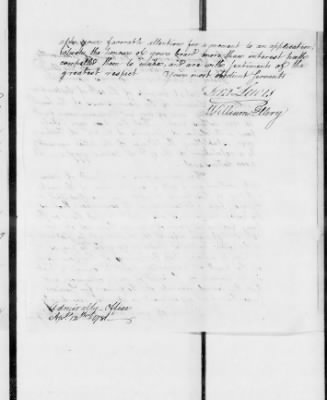 your favorable attention for a moment to an application,
the honour of your board more than interest hath
compelled them to make, and are with sentiments of the
greatest respect Your most obedient servants
Fra Lewis
William Ellery
Admiralty Office
12th 1781